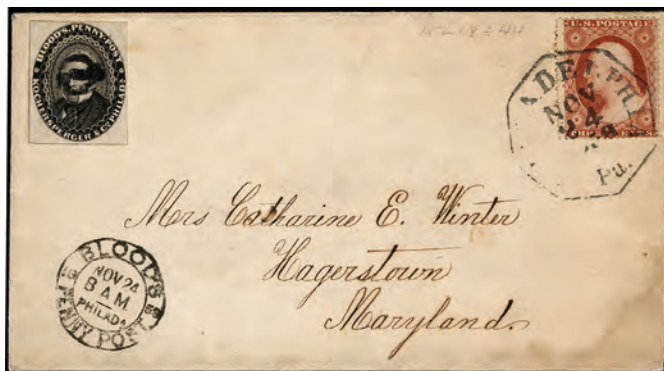 BLOOD'S PENNY POST
KOCHERSPERGER & CO. PHILADA
U.S. POSTAGE
ADELPHIA
NOV
24
Pa.
Mrs Catharine E. Winter
Hagerstown
Maryland.
BLOOD'S
NOV 24
8 A M
PHILADA
PENNY POST